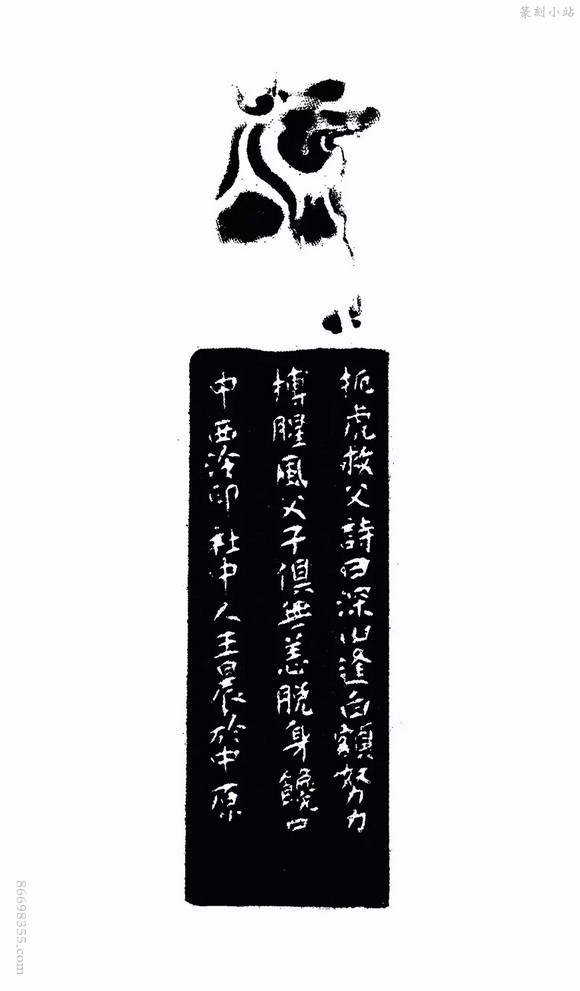 篆刻小站
扼虎救父詩曰深山逢白額努力
搏腥風父子俱無恙脫身饞口
中西泠印社中人王晨於中原
86698355.com